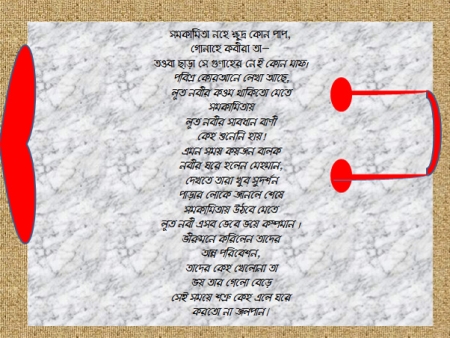 সমকামিতা নহে ক্ষুদ্র কোন পাপ,
গোনাহে কবীরা তা–
তওবা ছাড়া সে গুণাহের নেই কোন মাফ।
পবিত্র কোরআনে লেখা আছে,
লুত নবীর কওম থাকিতো মেতে
সমকামিতায়
লুত নবীর সাবধান বাণী
কেহ শুনেনি হায়।
এমন সময় কয়জন বালক
নবীর ঘরে হলেন মেহমান,
দেখতে তারা খুব সুদর্শন
পাড়ার লোকে জানলে শেষে
সমকামিতায় উঠবে মেতে
লুত নবী এসব ভেবে ভয়ে কম্পমান ।
ভীরুমনে করিলেন তাদের
অন্ন পরিবেশন,
তাদের কেহ খেলোনা তা
ভয় তার গেলো বেড়ে
সেই সময়ে শত্রু কেহ এলে ঘরে
করতো না জলপান।